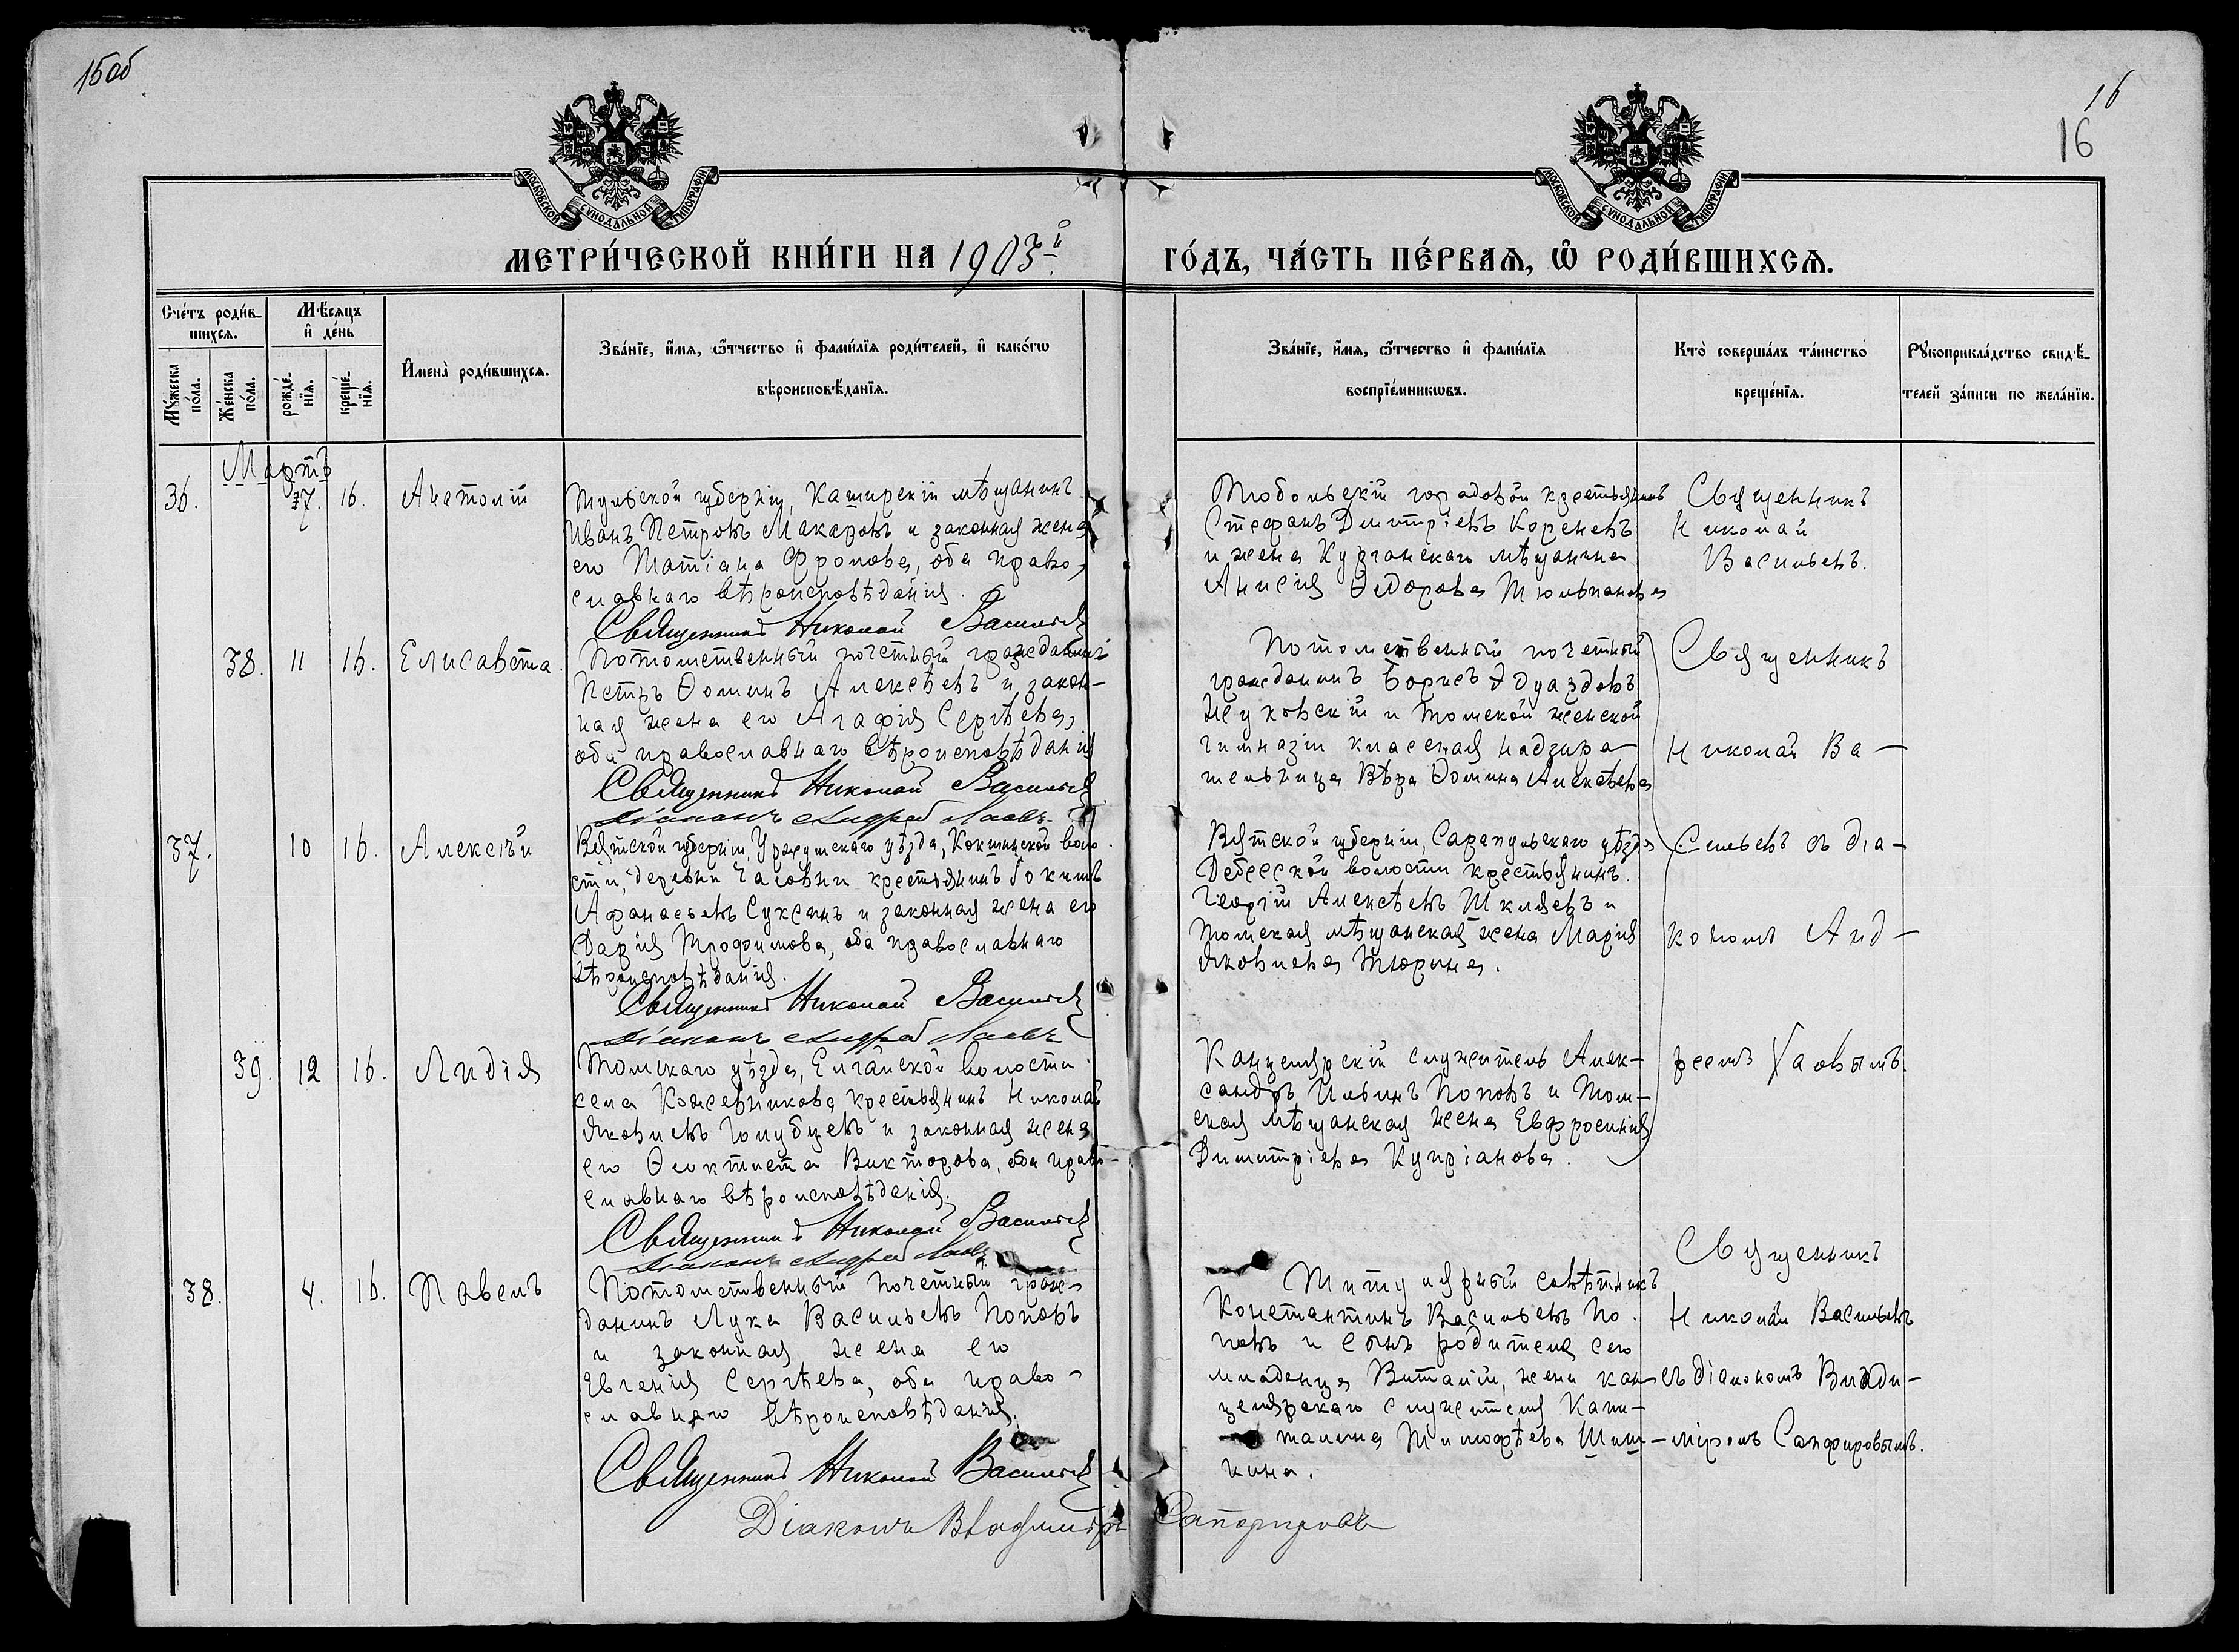 15об
16
16
МОСКОВСКОЙ СѴНОДАЛЬНОЙ ТИПОГРАФІИ
МОСКОВСКОЙ СѴНОДАЛЬНОЙ ТИПОГРАФІИ
МЕТРИ́ЧЕСКОЙ КНИ́ГИ НА 1903й
ГО́ДЪ, ЧА́СТЬ ПЕ́РВАЯ, Ѽ РОДИ́ВШИХСЯ.
Сче́тъ роди́в-
шихся.
Му́жеска
по́ла.
Же́нска
по́ла.
Мѣ́сяцъ
и де́нь
рожде́-
нїя.
креще́-
нїя.
Имена̀ роди́вшихся.
Зва́нїе, и́мя, ѻ́тчество и фами́лїя роди́телей, и како́гѡ
вѣроисповѣ́данїя.
Зва́нїе, и́мя, ѻ́тчество и фами́лїя
воспрїе́мникѡвъ.
Кто̀ соверша́лъ та́инство
креще́нїя.
Рукоприкла́дство свидѣ́-
телей за́писи по жела́нїю.
Мартъ
36. 7. 16. Анатолій
Тульской губерніи, Каширскій мѣщанинъ
Иванъ Петровъ Макаровъ и законная жена
его Татіана Фролова, оба право-
славнаго вѣроисповѣданія.
Священникъ Николай Васильев
Тобольскій городовой крестьянинъ
Стефанъ Димитріевъ Кореневъ
и жена Курганскаго мѣщанина
Анисія Ѳедорова Тюльпанова
Священникъ
Николай
Васильевъ.
38. 11 16. Елисавета.
Потомственный почетный гражданинъ
Петръ Ѳоминъ Алексѣевъ и закон-
ная жена его Агафія Сергѣева,
оба православнаго вѣроисповѣданія
Священникъ Николай Васильев
Діаконъ Андрей
Потомственный почетный
гражданинъ Борисъ Эдуардовъ
Жуковскій и Томской женской
гимназіи классная надзира-
тельница Вѣра Ѳомина Алексѣева
Священникъ
Николай Ва-
37. 10 16. Алексѣй
Вятской губерніи, Уржумскаго уѣзда, Кокшинской воло-
сти, деревни Часовни крестьянинъ Іокимъ
Афанасьевъ Суксинъ и законная жена его
Дарія Трофимова, оба православнаго
вѣроисповѣданія.
Священникъ Николай Васильев
Діаконъ Андрей
Вятской губерніи, Сарапульскаго уѣзда
Дебесской волости крестьянинъ
Георгій Алексѣевъ Шкляевъ и
Томская мѣщанская жена Марія
Яковлева Тюрина.
сильевъ съ діа-
кономъ Анд-
39. 12 16. Лидія
Томскаго уѣзда, Елгайской волости
села Кожевникова крестьянинъ Николай
Яковлевъ Голубцевъ и законная жена
его Ѳеоктиста Викторова, оба право-
славнаго вѣроисповѣданія.
Священникъ Николай Васильев
Діаконъ Андрей
Канцелярскій служитель Алек-
сандръ Ильинъ Поповъ и Том-
ская мѣщанская жена Евфросинія
Димитріева Купріанова.
реемъ
38. 4. 16. Павелъ
Потомственный почетный граж-
данинъ Лука Васильевъ Поповъ
и законная жена его
Евгенія Сергѣева, оба право-
славнаго вѣроисповѣданія.
Священникъ Николай Васильев
Діаконъ Владиміръ Сапфировъ
Титулярный совѣтникъ
Константинъ Васильевъ По-
повъ и сынъ родителя сего
младенца Виталій, жена кан-
целярскаго служителя Капи-
талина Тимофѣева Шиш-
кина.
Священникъ
Николай Васильевъ
съ діакономъ Влади-
міромъ Сапфировымъ.